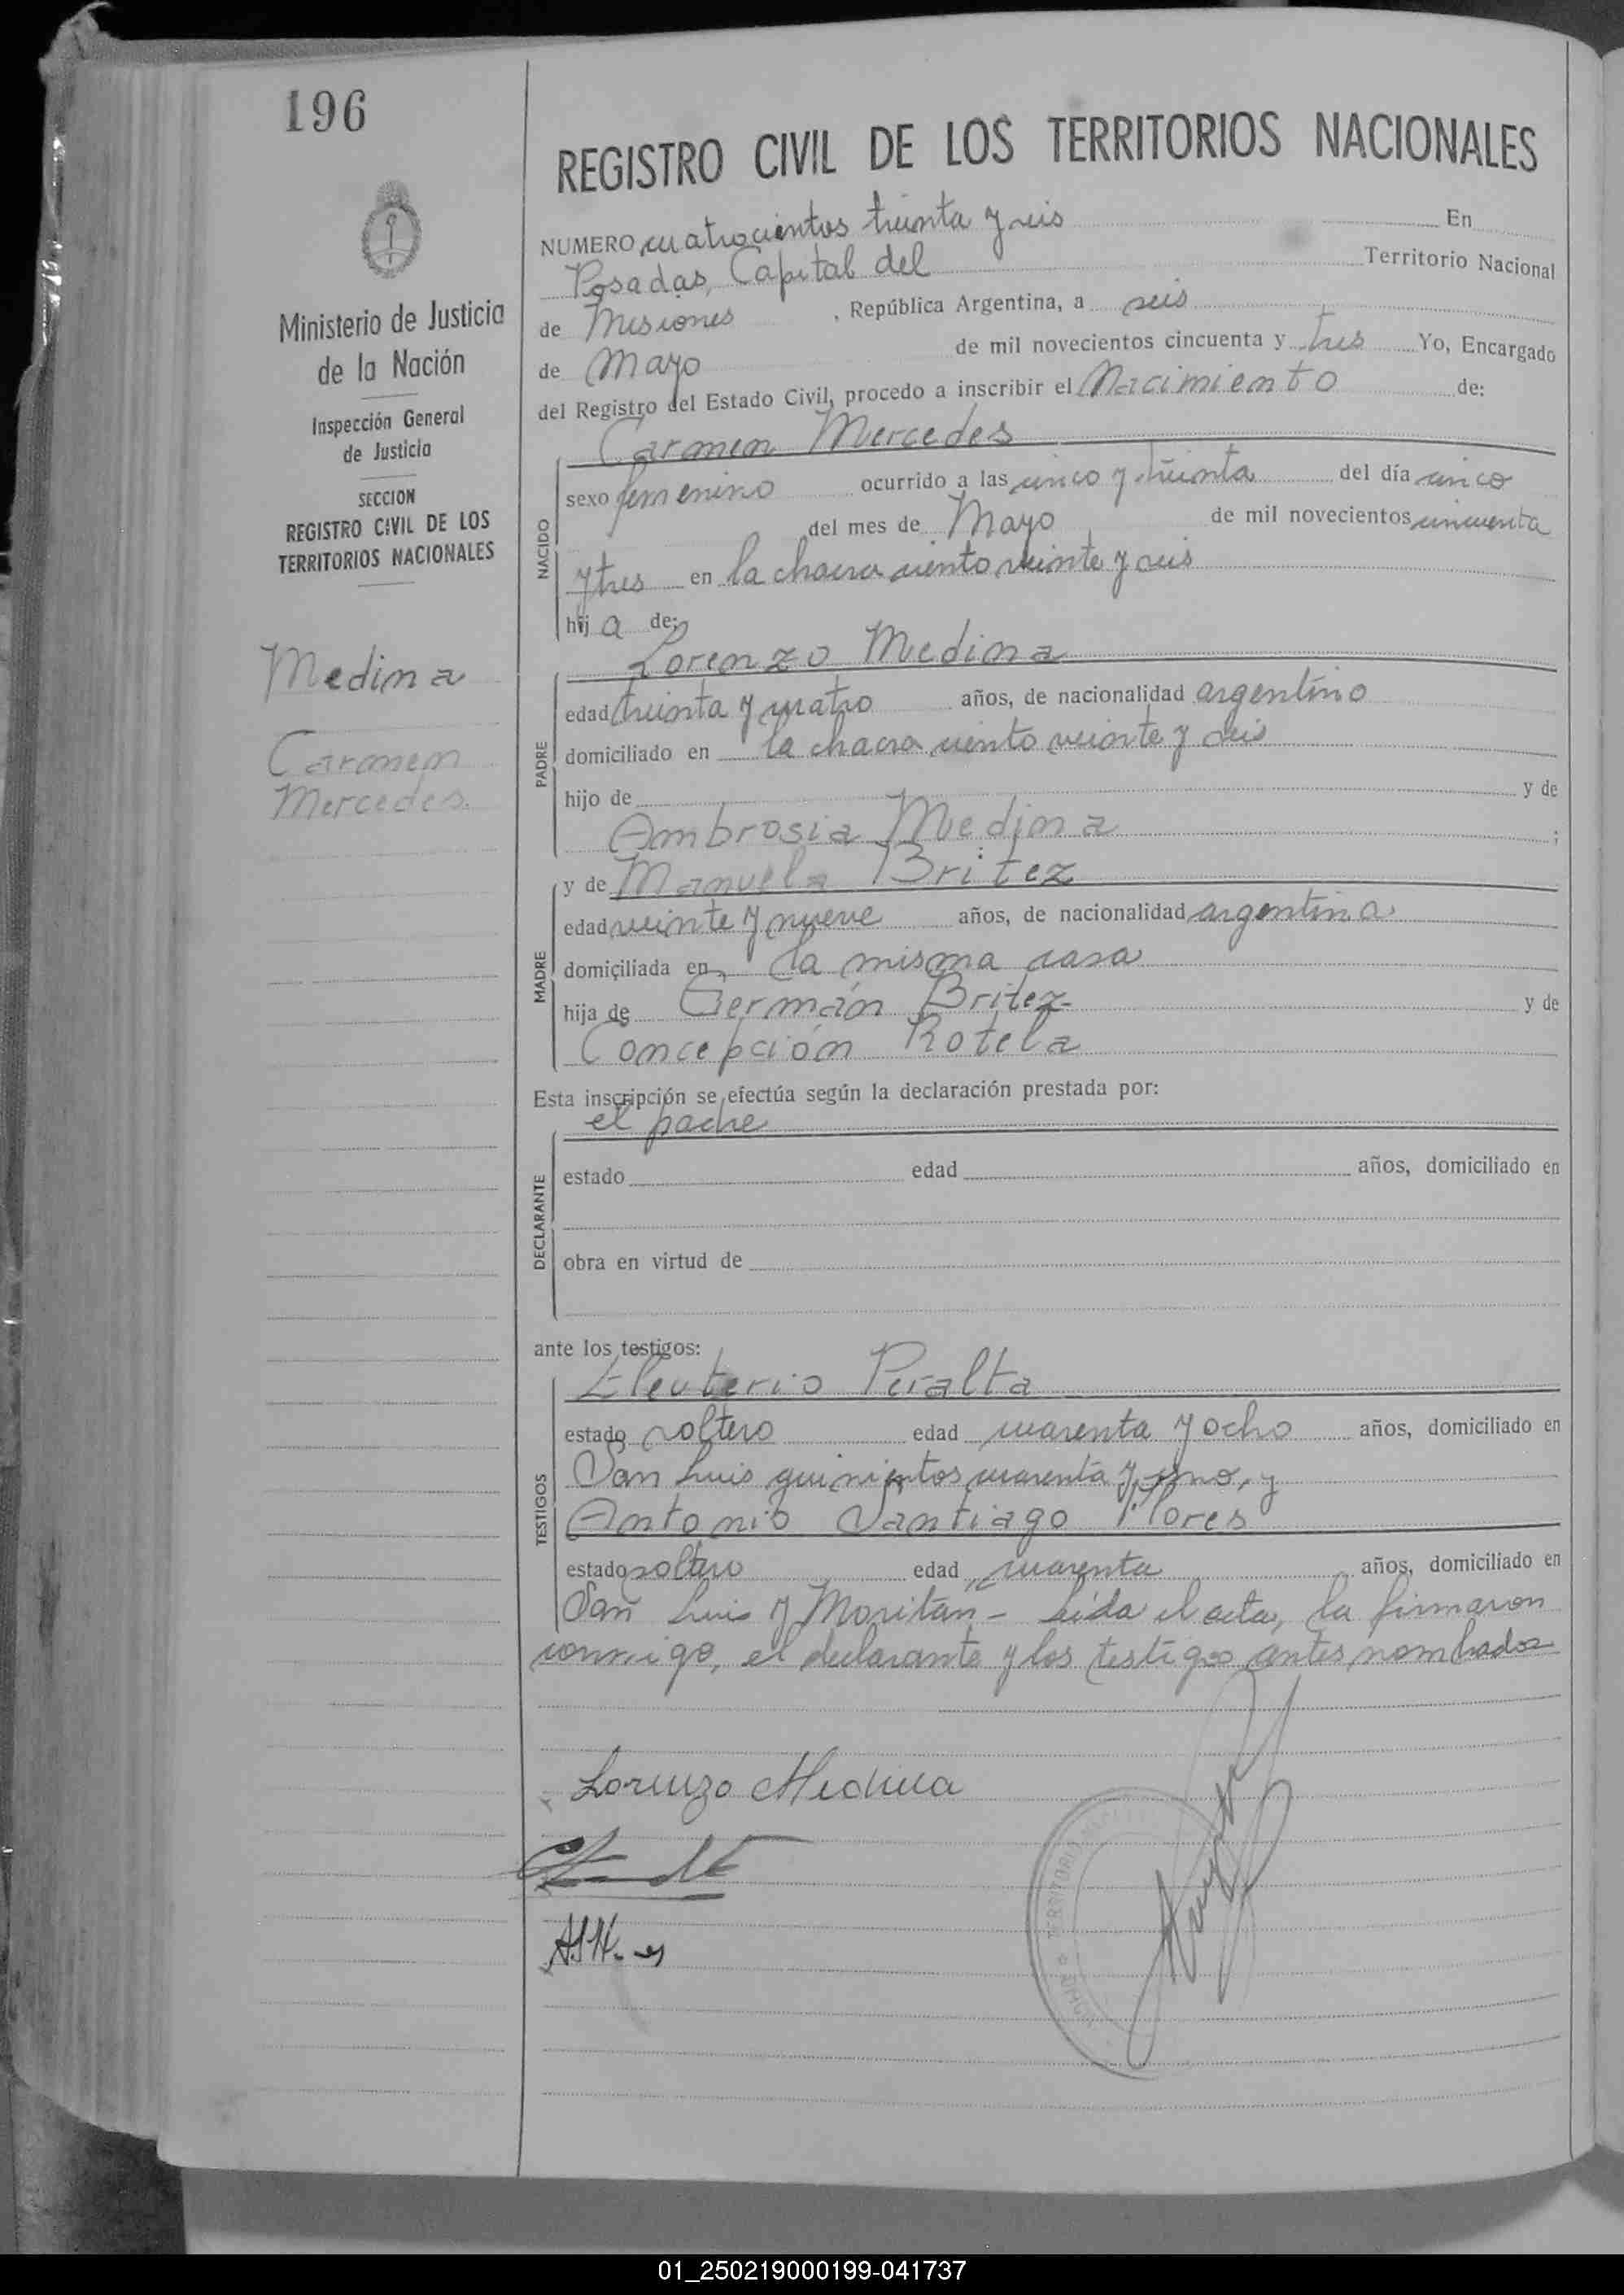 196
REGISTRO CIVIL DE LOS TERRITORIOS NACIONALES
NUMERO cuatrocientos treinta y seis En
Posadas, Capital del Territorio Nacional
de Misiones, República Argentina, a seis
de Mayo de mil novecientos cincuenta y tres Yo, Encargado
del Registro del Estado Civil, procedo a inscribir el Nacimiento de:
Carmen Mercedes
sexo femenino ocurrido a las cinco y treinta del día cinco
del mes de Mayo de mil novecientos cincuenta
y tres en la chacra ciento veinte y seis
hij a de:
NACIDO
Lorenzo Medina
edad treinta y cuatro años, de nacionalidad argentino
domiciliado en la chacra ciento veinte y seis
hijo de y de
Ambrosia Medina ;
PADRE
y de Manuela Britez
edad veinte y nueve años, de nacionalidad argentina
domiciliada en la misma casa
hija de Germán Britez y de
Concepción Rotela
MADRE
Esta inscripción se efectúa según la declaración prestada por:
el padre
estado edad años, domiciliado en
obra en virtud de
DECLARANTE
ante los testigos:
Eleuterio Peralta
estado soltero edad cuarenta y ocho años, domiciliado en
San Luis quinientos cuarenta y uno, y
Antonio Santiago Flores
estado soltero edad cuarenta años, domiciliado en
San Luis y Moritán - Leída el acta, la firmaron
TESTIGOS
conmigo, el declarante y los testigos antes nombrados
Lorenzo Medina
Ministerio de Justicia
de la Nación
Inspección General
de Justicia
SECCION
REGISTRO CIVIL DE LOS
TERRITORIOS NACIONALES
Medina
Carmen
Mercedes.
01_250219000199-041737